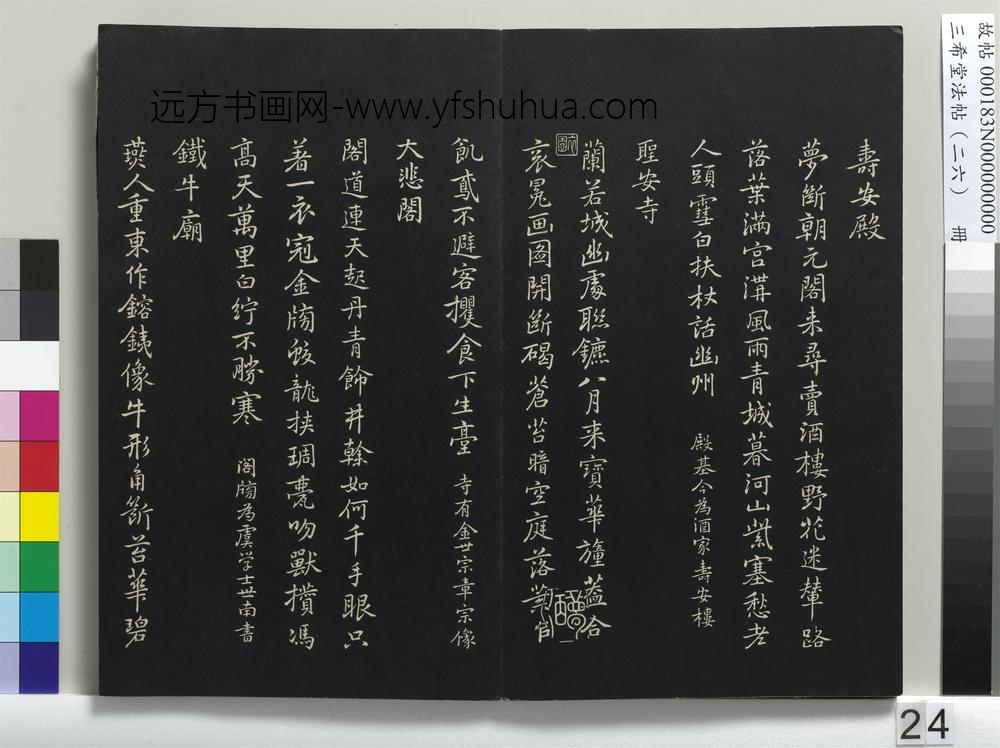 壽安殿
夢斷朝元閣来尋賣酒樓野花迷輦路
落葉滿宫溝風雨青城暮河山紫塞愁老
人頭雪白扶杖話幽州 殿基今為酒家壽安樓
聖安寺
蘭若城幽處聯鑣八月来寶華幢蓋合
衮冕画圖開斷碣蒼苔暗空庭落葉
飢鳶不避客攫食下生臺 寺有金世宗章宗像
大悲閣
閣道連天起丹青飾井榦如何千手眼只
着一衣冠金牓蛟龍挟琱甍吻獸攢馮
髙天萬里白紵不勝寒 閣牓為虞学士世南書
鐵牛廟
燕人重東作鎔鐵像牛形角斷苔華碧
远方书画网-www.yfshuhua.com
故帖000183N000000000
三希堂法帖(二六) 冊
24